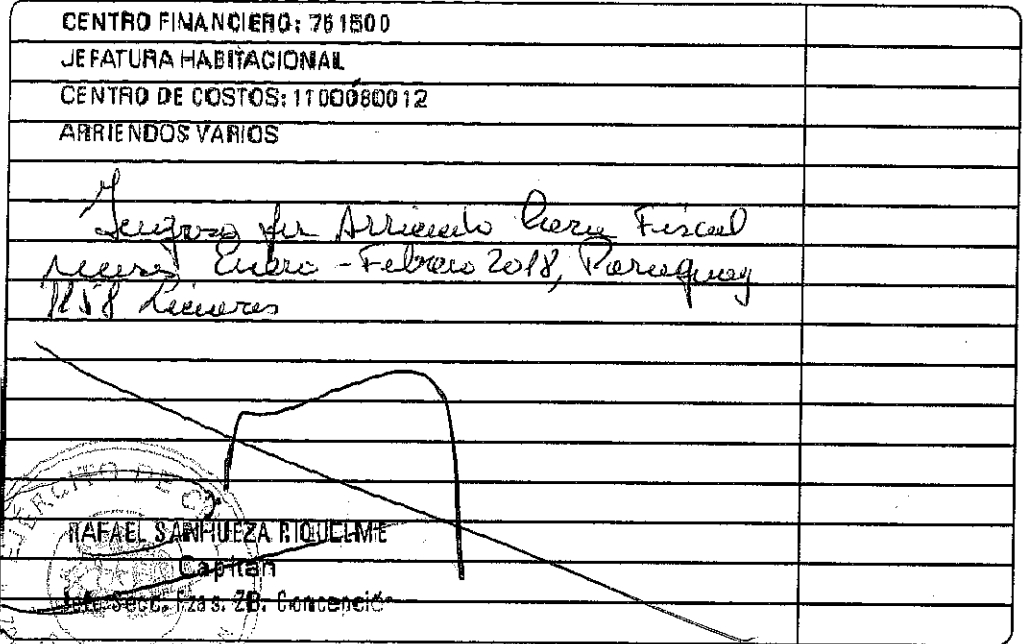 CENTRO FINANCIERO: 761500
JEFATURA HABITACIONAL
CENTRO DE COSTOS: 1100080012
ARRIENDOS VARIOS
Ingreso por Arriendo Casa Fiscal
meses Enero - Febrero 2018, Paraguay
1158 Linares
EJERCITO DE
RAFAEL SANHUEZA RIQUELME
Capitán
Jefe Secc. Fzas. ZB. Concepción